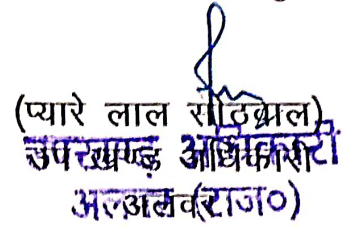 (प्यारे लाल सोठवाल)
उपखण्ड अधिकारी
अलवर (राज०)